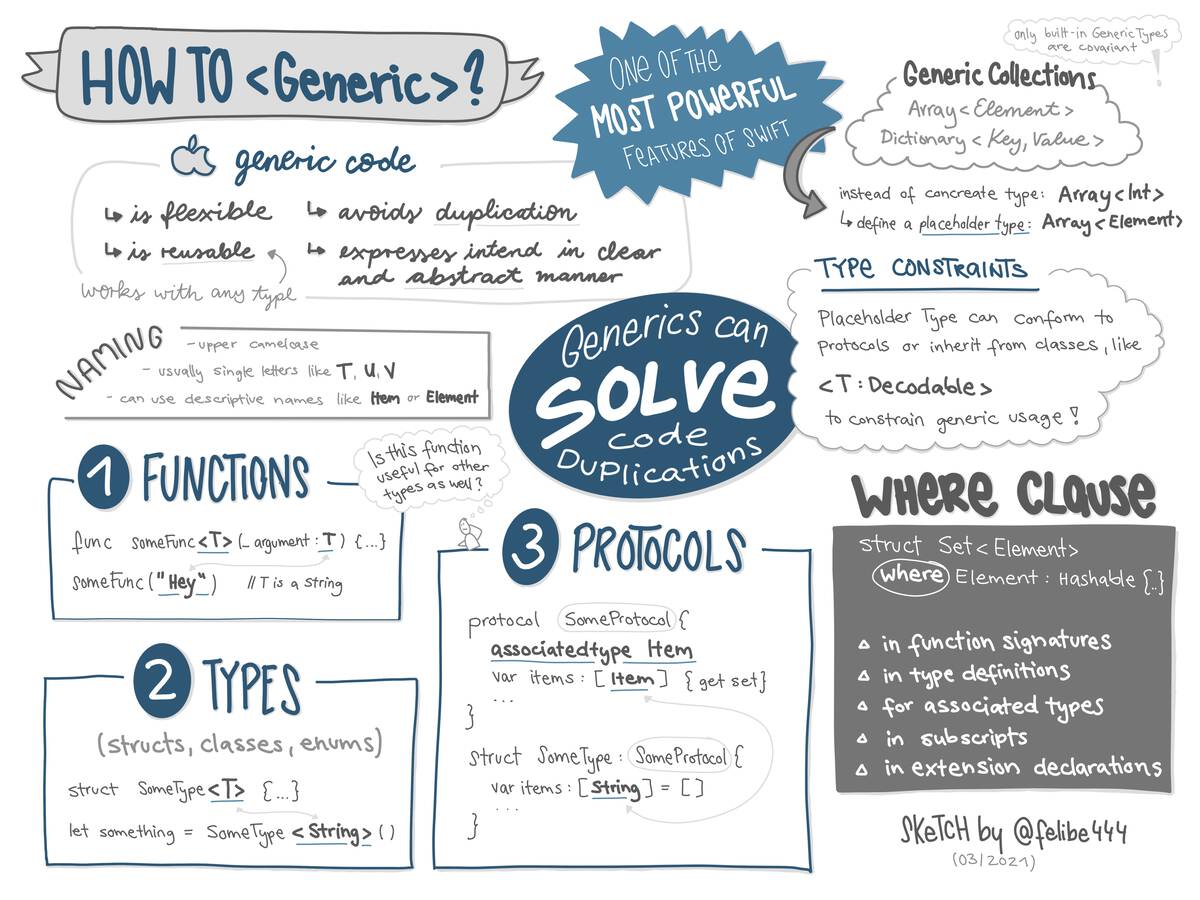 HOW TO <Generic>?
generic code
↳ is flexible
↳ is reusable
works with any type
↳ avoids duplication
↳ expresses intend in clear
and abstract manner
ONE OF THE
MOST POWERFUL
FEATURES OF SWIFT
only built-in Generic Types
are covariant
!
Generic Collections
Array<Element>
Dictionary<Key, Value>
instead of concreate type: Array<Int>
↳ define a placeholder type: Array<Element>
NAMING
- upper camelcase
- usually single letters like T, U, V
- can use descriptive names like Item or Element
Generics can
SOLVE
code
DUPlications
TYPE CONSTRAINTS
Placeholder Type can conform to
protocols or inherit from classes, like
<T: Decodable>
to constrain generic usage!
1 FUNCTIONS
Is this function
useful for other
types as well?
func someFunc<T>(_ argument: T) {...}
someFunc("Hey") // T is a String
2 TYPES
(structs, classes, enums)
struct SomeType<T> {...}
let something = SomeType<String>()
3 PROTOCOLS
protocol SomeProtocol {
associatedtype Item
var items: [Item] {get set}
...
}
struct SomeType: SomeProtocol {
var items: [String] = []
...
}
WHERE CLAUSE
struct Set<Element>
where Element: Hashable {..}
△ in function signatures
△ in type definitions
△ for associated types
△ in subscripts
△ in extension declarations
SKETCH by @felibe444
(03/2021)